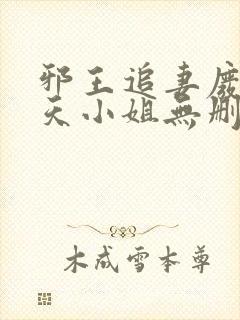 邪王追妻廢
天小姐無刪
木成雪本尊